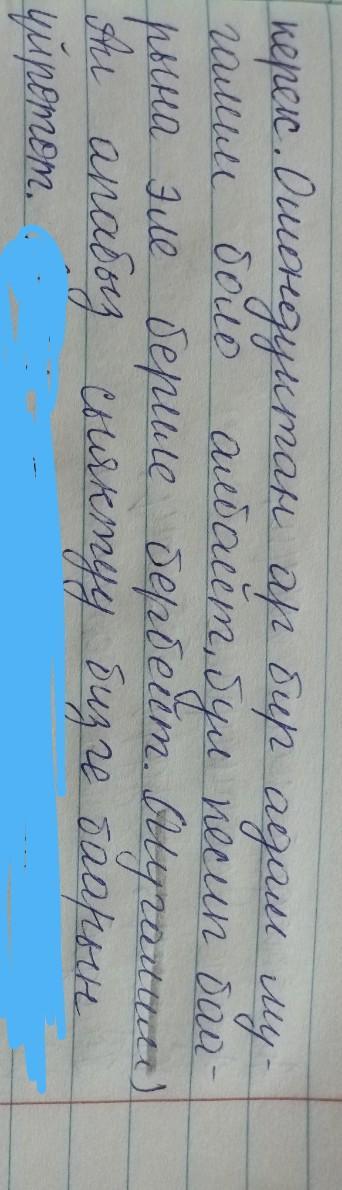 керек. Ошондуктан ар бир адам му-
галим боло албайт, бул кесип баа-
рына эле бериле бербейт. (Мугалим)
Ал апабыз сыяктуу бизге баарын
үйрөтөт.